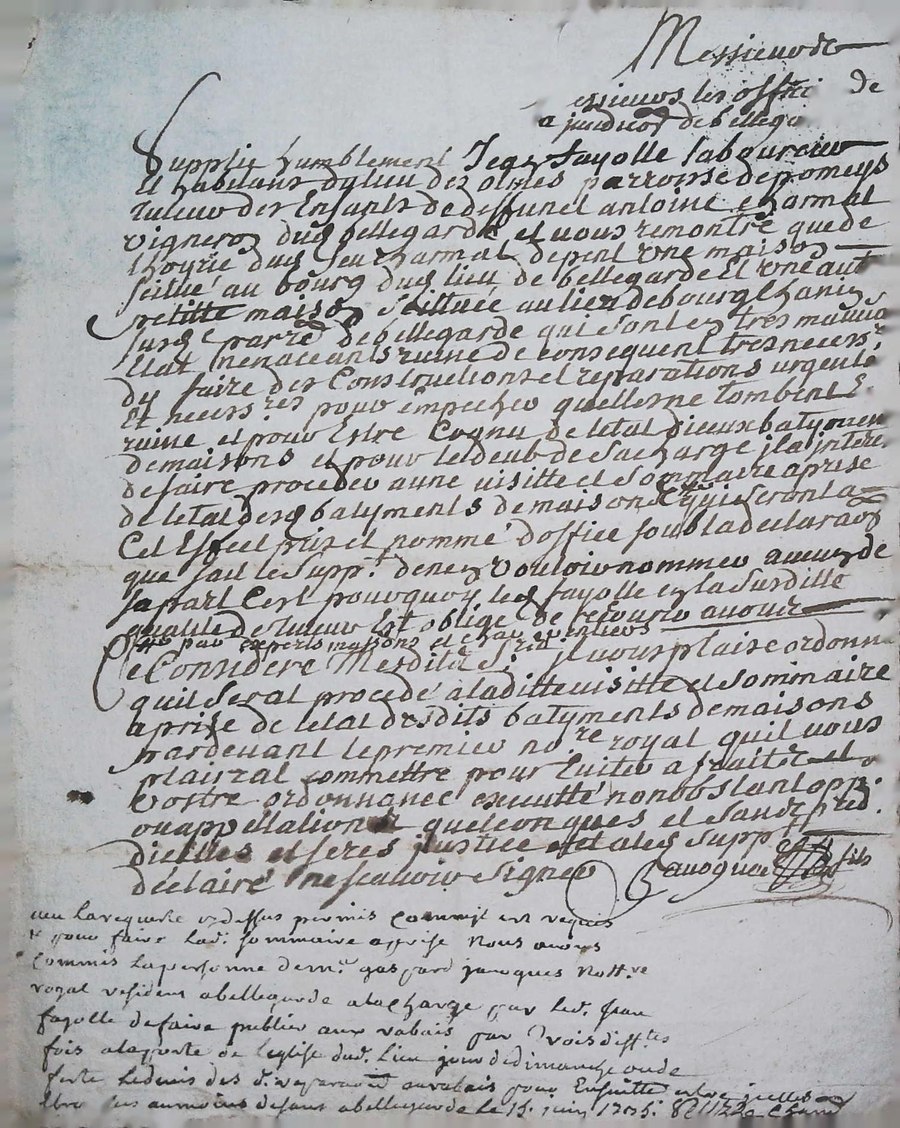 Messieurs de
essieurs les offici de
a juridics de bellega
Supplie humblement Jean fayolle laboureur
et habitant du lieu des olmes parroisse de pomeys
tuteur des Enfants de deffunct antoine charmat
vigneron dud bellegarde et vous remontre que de
lhoyrie dud feu charmat depent vne maison
scittué au bourg dud lieu de bellegarde Et vne aut
petitte maison scittuée au lieu de bourgchanin
susd parre de bellegarde qui sont en tres mauvais
Etat menaceants ruine de consequent tres necessre
dy faire des Constructions et reparations urgente
Et necessres pour empecher quelles ne tombent E
ruine et pour Estre Cognu de letat dieux batymen
de maisons et pour le deub de sa charge jl a jntere
de faire proceder a une visitte et Sommaire aprise
de letat desd batyments de maisons qui seront a
Cet Effect pris et nommé doffice soubs la declaraon
que fait le Suppt de ne vouloir nommer aucun de
sa part Cest pourquoy led fayolle en la susditte
qualité de tuteur Est obligé de recourir a vous
par experts massons et charpentiers
Ce Consideré Mesdits Srs jl vous plaise ordonne
quil Serat procedé a la ditte visitte et sommaire
aprise de letat desdits batyments de maisons
pardevant le premier nore royal quil vous
plairrat commettre pour Eviter a fraits et
vostre ordonnance executté nonobstant opp
ou appellations quelconques et sans pred
dicelles et feres justice et a led suppt
declairé ne scavoir Signer
fils
veu la requeste cy dessus permis Commist est requis
et pour faire lad. sommaire apprise Nous avons
commis la personne de mr. gaspard jacoques Nottre
royal resident a bellegarde a la charge par led. Jean
fayolle de faire publier aux rabais par trois difftes
fois a la porte de leglise dud. Lieu jour de dimanche ou de
feste le devis des d. reparaons au rabais pour Ensuitte
a bellegarde le 15. juin